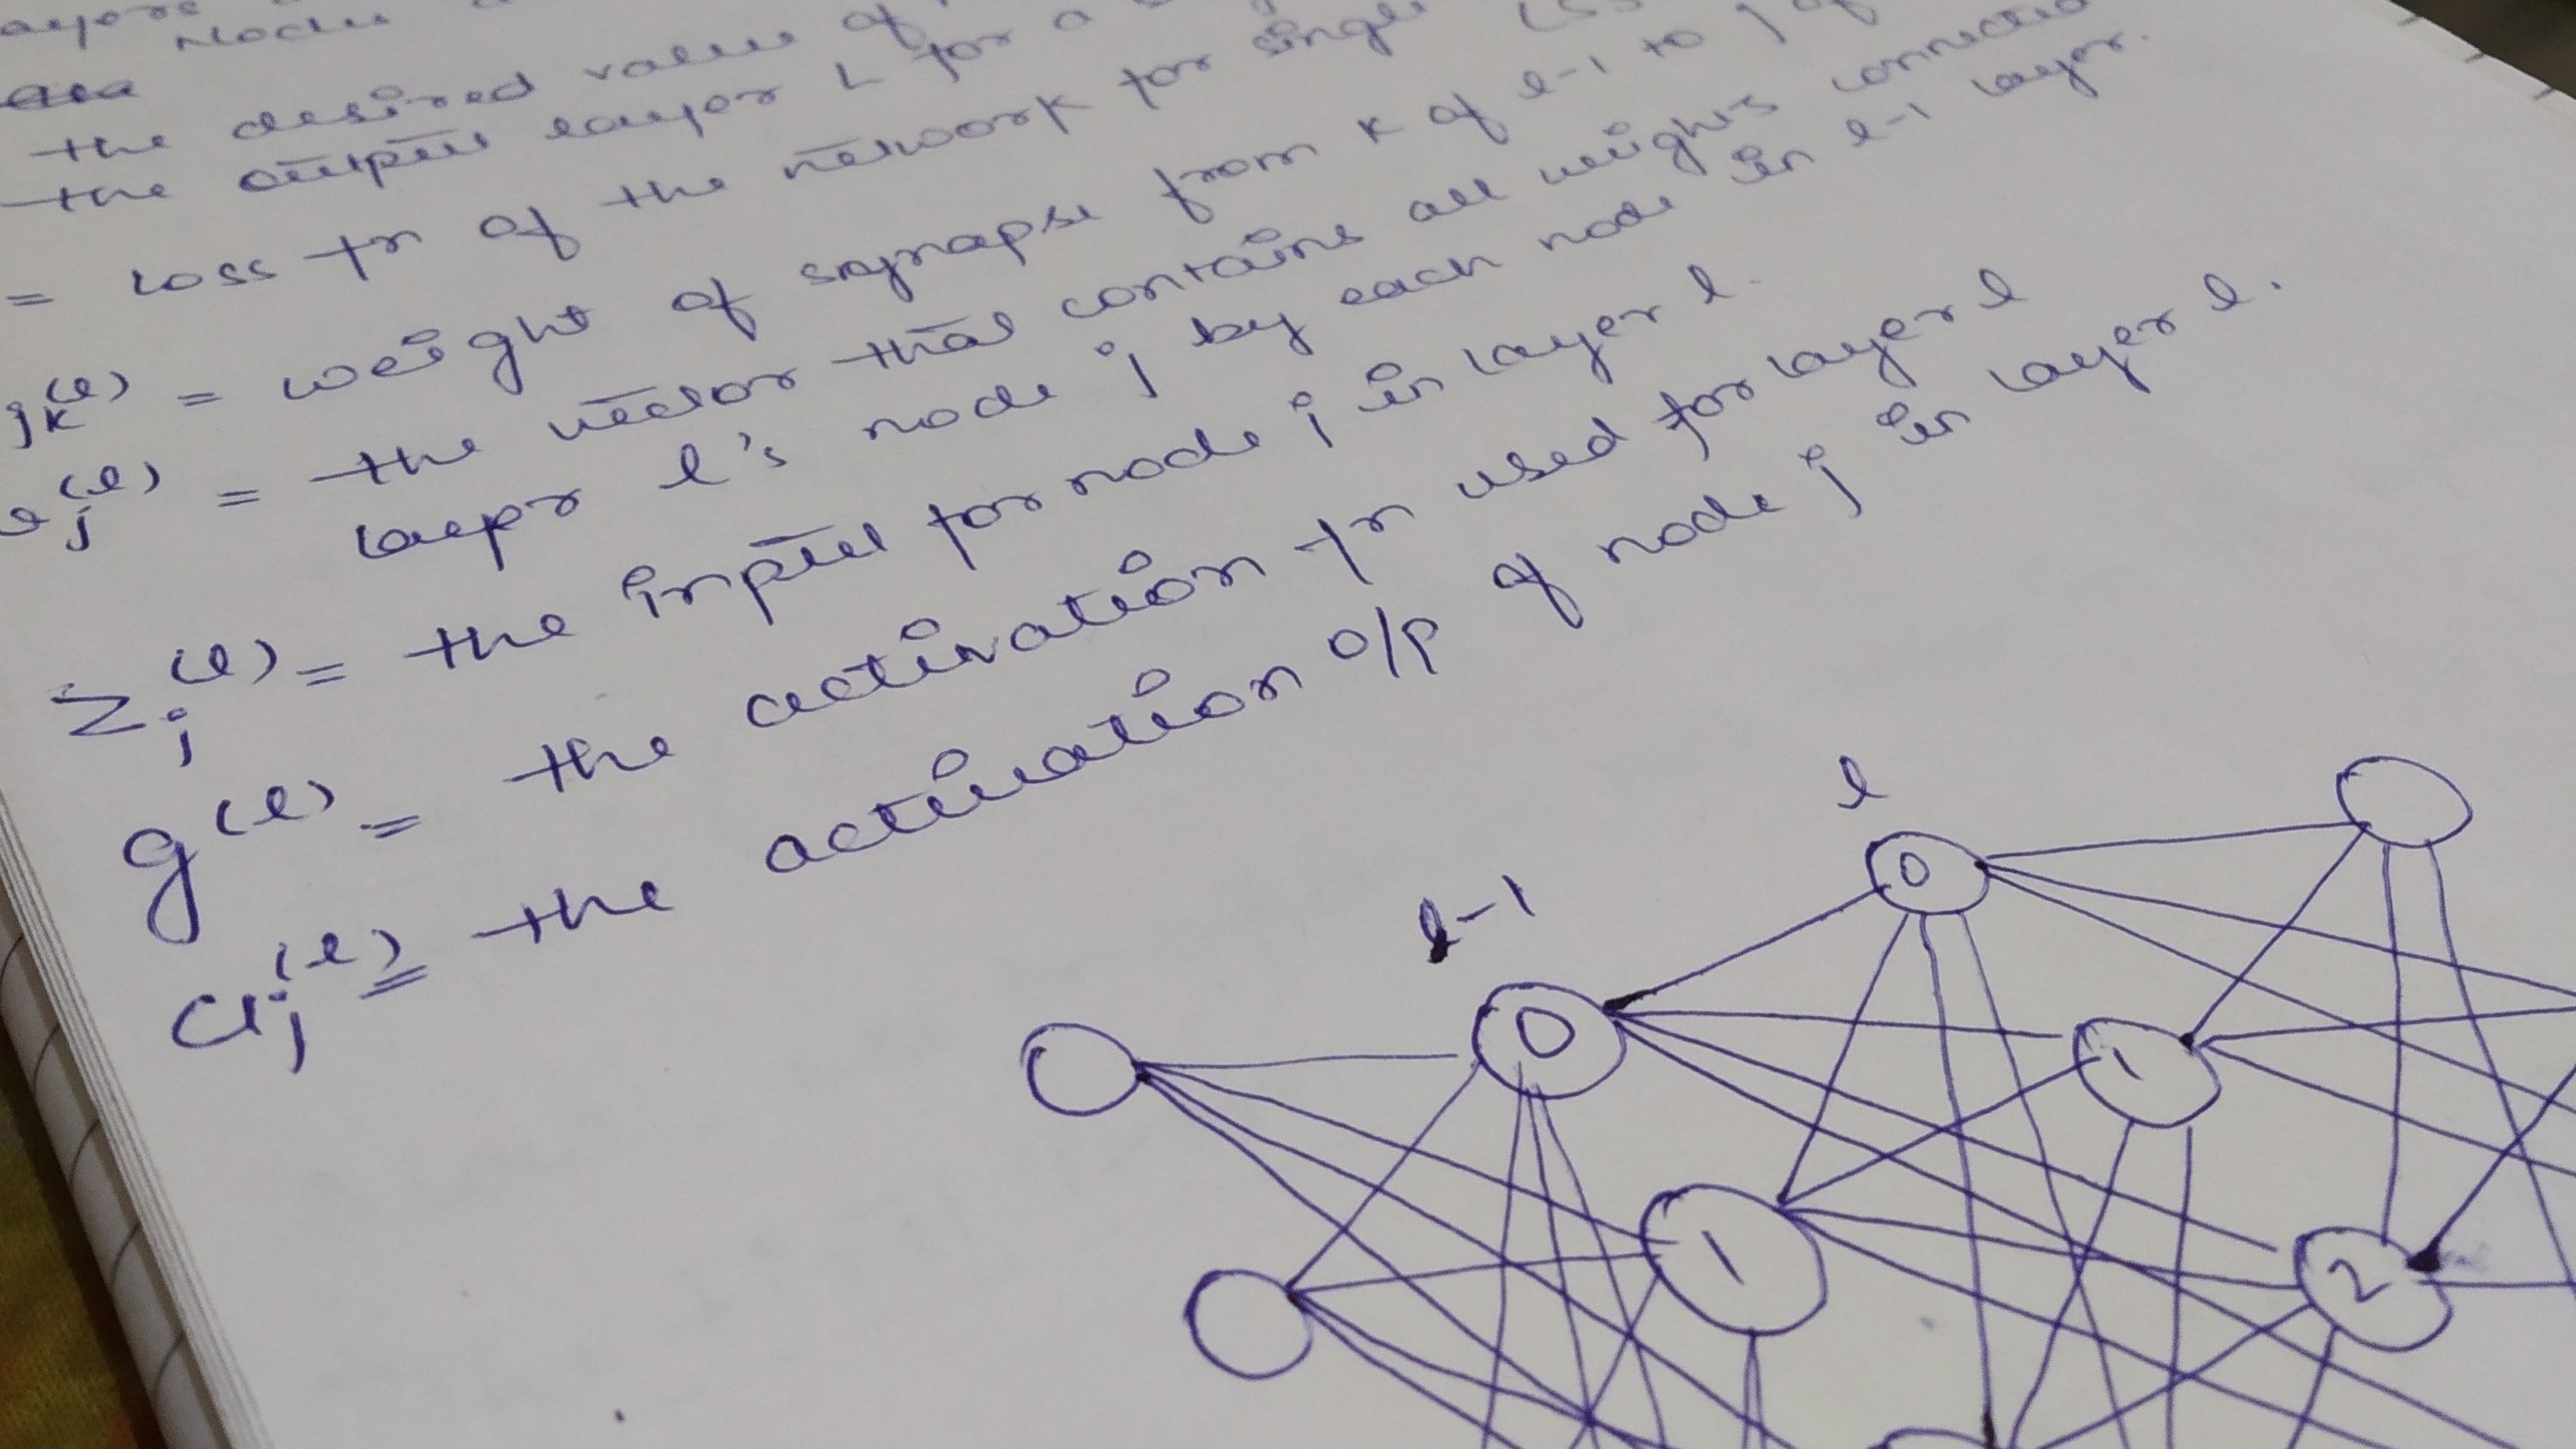 Node
the desired value of
the output layer L for a
= loss fn of the network for single
jk(l) = weight of synapse from k of l-1 to j of
j(l) = the vector that contains all weights connected
layer l's node j by each node in l-1 layer.
zj(l) = the input for node j in layer l.
g(l) = the activation fn used for layer l
aj(l) = the activation o/p of node j in layer l.
l
l-1
0
0
1
1
2